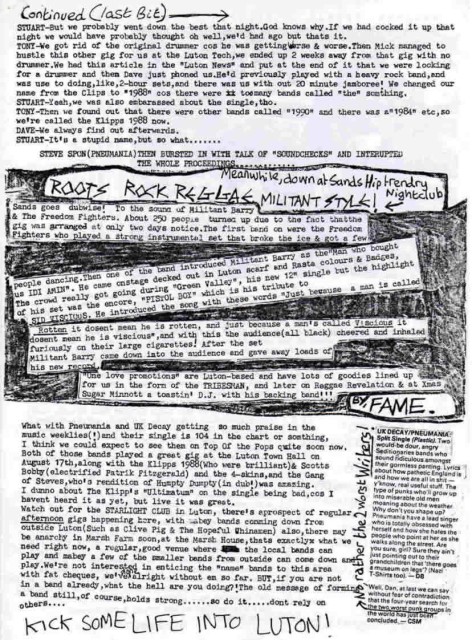 Continued (last Bit)
STUART-But we probably went down the best that night.God knows why.If we had cocked it up that
night we would have probably thought oh well,we'd had ago but thats it.
TONY-We got rid of the original drummer cos he was getting worse & worse.Then Mick managed to
hustle this other gig for us at the Luton Tech,we ended up 2 weeks away from that gig with no
drummer.We had this article in the "Luton News" and put at the end of it that we were looking
for a drummer and them Dave just phoned us.He'd previously played with a heavy rock band,and
was use to doing,like,2-hour sets,and there was us with out 20 minute jamboree! We changed our
name from the Clips to "1988" cos there were toomany bands called "the" somthing.
STUART-Yeah,we was also embarassed about the single,tho.
TONY-Then we found out that there were other bands called "1990" and there was a"1984" etc,so
we're called the Klipps 1988 now.
DAVE-We always find out afterwards.
STUART-It's a stupid name,but so what.......
STEVE SPON(PNEUMANIA)THEN BURSTED IN WITH TALK OF "SOUNDCHECKS" AND INTERUPTED
THE WHOLE PROCEEDINGS
Meanwhile, down at Sands Hip trendry Nightclub
ROOTS ROCK REGGAE MILITANT STYLE!
Sands goes dubwise! To the sound of Militant Barry
& The Freedom Fighters. About 250 people turned up due to the fact thatthe
gig was arranged at only two days notice.The first band on were the Freedom
Fighters who played a strong instrumental set that broke the ice & got a few
people dancing.Then one of the band introduced Militant Barry as the"Man who bought
us IDI AMIN". He came onstage decked out in Luton scarf and Rasta colours & Badges,
The crowd really got going during "Green Valley", his new 12" single but the highlight
of his set was the encore, "PISTOL BOX" which is his tribute to
SID VISCIOUS. He introduced the song with these words "Just because a man is called
Rotten it dosent mean he is rotten, and just because a man's called Viscious it
dosent mean he is viscious",and with this the audience(all black) cheered and inhaled
furiously on their large cigarettes! After the set
Militant Barry came down into the audience and gave away loads of
his new record
"One love promotions" are Luton-based and have lots of goodies lined up
for us in the form of the TRIBESMAN, and later on Reggae Revelation & at Xmas
Sugar Minnott a toastin' D.J. with his backing band!!!
BY FAME.
What with Pneumania and UK Decay getting so much praise in the
music weeklies(!)and their single is 104 in the chart or soothing,
I think we could expect to see them on Top Of the Pops quite soon now.
Both of those bands played a great gig at the Luton Town Hall on
August 17th,along with the Klipps 1988(Who were brilliant)& Scotts
Bobby(electrified Patrik Fitzgerald) and the 4-mins,and the Gang
of Steves,who's rendition of Humpty Dumpty(in dub!)was amazing.
I dunno about the Klipp's "Ultimatum" on the single being bad,cos I
havent heard it as yet, but live it was great.
Watch out for the STARLIGHT CLUB in Luton, there's aprospect of regular
afternoon gigs happening here, with many bands coming down from
outside Luton(Such as Clive Pig & The Hopeful Chinamen) also,there may
be anarchy in Marsh Farm soon,at the Marsh House,thats exactlyx what we
need right now, a regular,good venue where the local bands can
play and maybe a few of the smaller bands from outside can come down and
play.We're not interested in enticing the "name" bands to this area
with fat cheques, we're alright without em so far. BUT,if you are not
in a band already,what the hell are you doing?!The old message of forming
a band still,of course,holds strong......so do it.....dont rely on
others....
KICK SOME LIFE INTO LUTON!
two rather the worst writers!
UK DECAY/PNEUMANIA:
Split Single (Plastic). Two
would-be dour, angry
Sediliosparies bands who
sound ridiculous amongst
their promises panning. Lyrics
about how pathetic England is
and how we are all in shit —
y'know, real useful stuff. The
type of punks who'll grow up
into miserable old men
moaning about the weather.
Why don't you shape up?
Pneumania have a lead singer
who is totally obsessed with
herself and how dense are the
people who point at her as she
walks along the street. Are
you sure, girl? Sure they ain't
just pointing out to their
grandchildren that 'there goes
a museum on legs'? (Nazi
T-Shirts too). — DB
Well, Dan, at last we can say
without fear of contradiction
that the four-year search for
the two worst punk groups in
the world has just been
concluded. — CSM